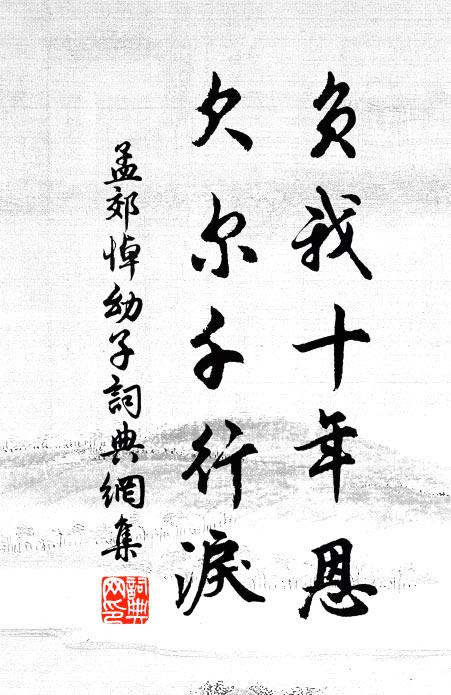 负我十年恩
欠尔千行淚
孟郊悼幼子詞典網集
詞典网印